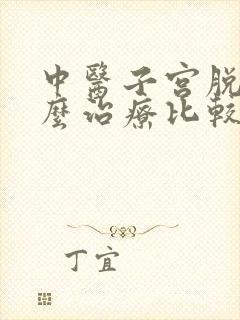 中醫子宮脫
麼治療比較
丁宜